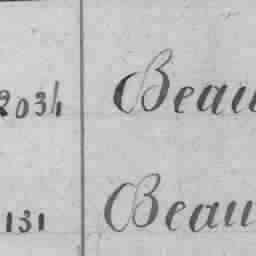 2034 Beau
131 Beau